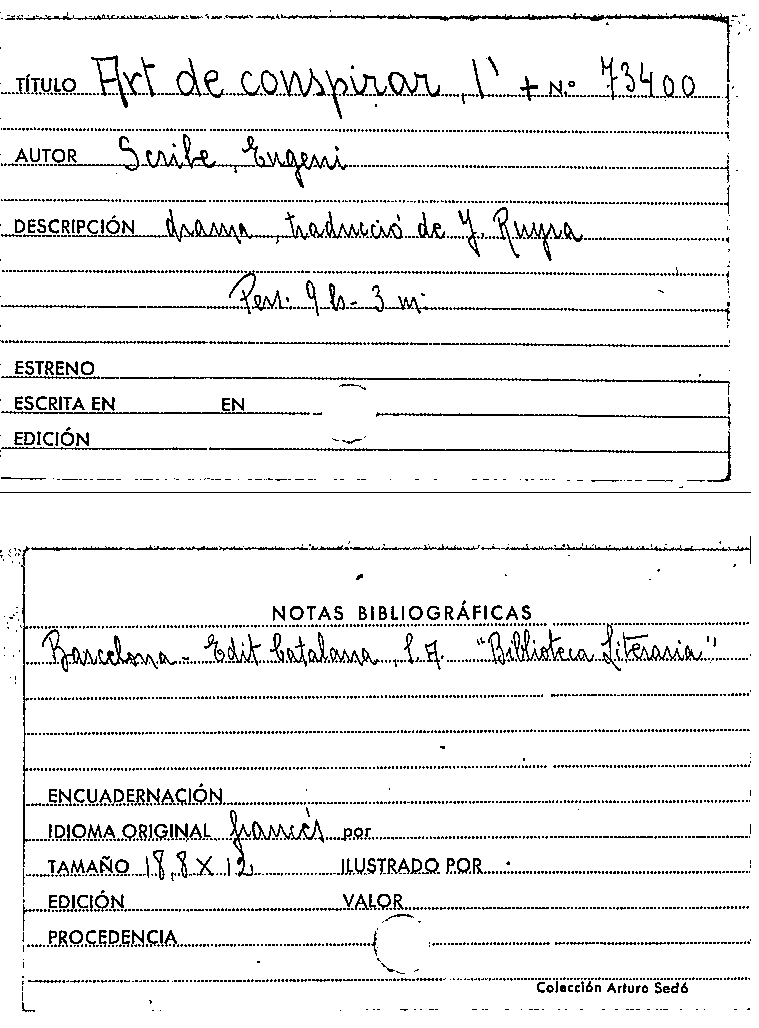 TÍTULO Art de conspirar, l' + N.º 73400
AUTOR Scribe, Eugeni
DESCRIPCIÓN drama, traducció de J. Ruyra
Pers. 9 h - 3 m.
ESTRENO
ESCRITA EN EN
EDICIÓN
NOTAS BIBLIOGRÁFICAS
Barcelona - Edit Catalana, S.A. "Biblioteca Literaria"
ENCUADERNACIÓN
IDIOMA ORIGINAL francés por
TAMAÑO 18,8 X 12 ILUSTRADO POR
EDICIÓN VALOR
PROCEDENCIA
Colección Arturo Sedó